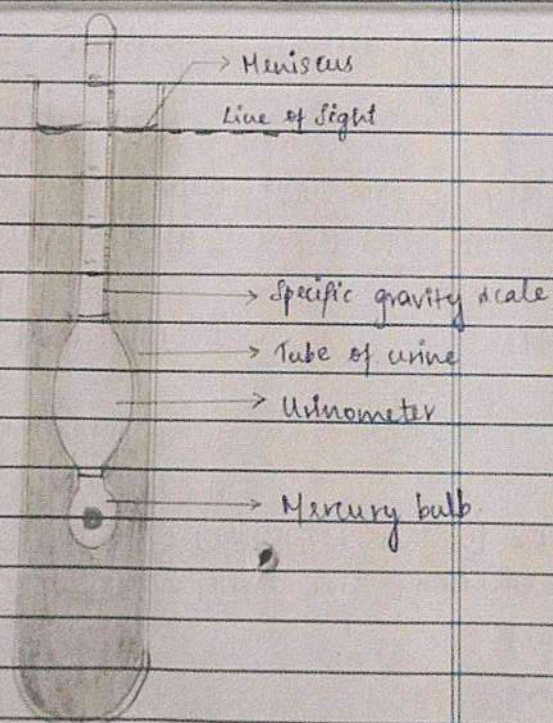 Meniscus
Line of Sight
Specific gravity scale
Tube of urine
Urinometer
Mercury bulb